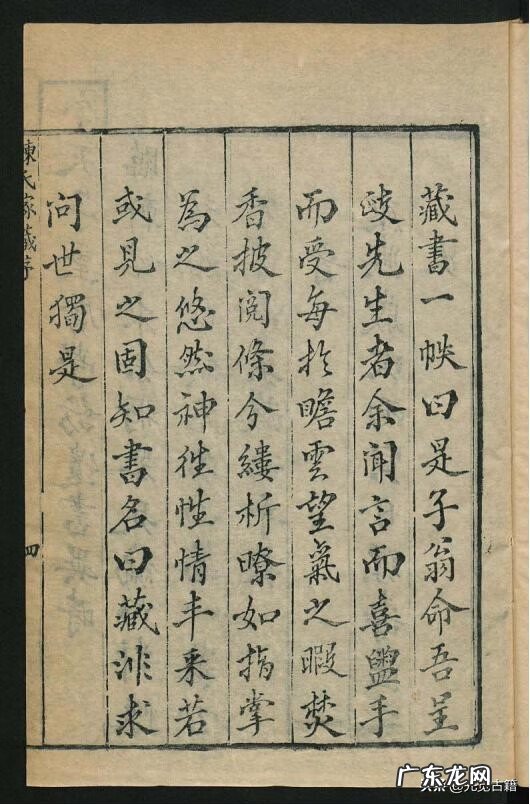 藏書一帙曰是子翁命吾呈
歧先生者余聞言而喜盥手
而受每扵瞻雲望氣之暇焚
香披閱條分縷析暸如指掌
為之悠然神徃性情丰采若
或見之固知書名曰藏非求
問世獨是
陳氏家藏序
四
广东龙网
头条@允觉古籍